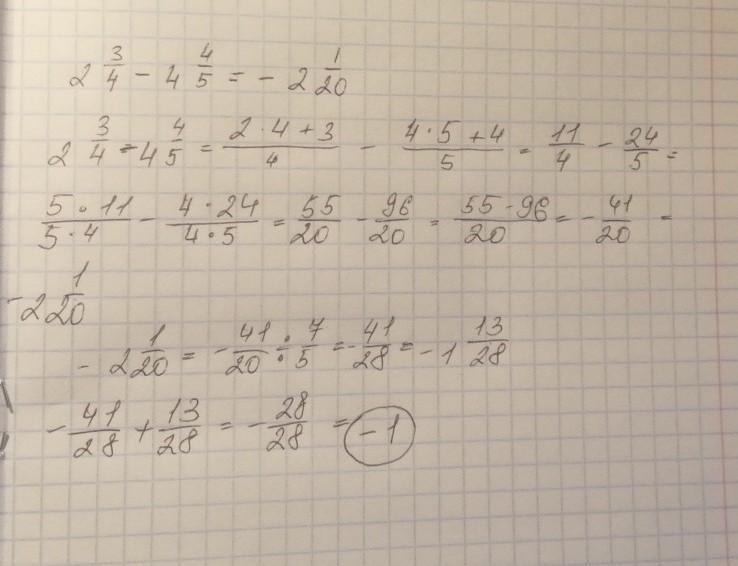 2 3/4 - 4 4/5 = - 2 1/20
2 3/4 - 4 4/5 = (2 · 4 + 3)/4 - (4 · 5 + 4)/5 = 11/4 - 24/5 =
(5 · 11)/(5 · 4) - (4 · 24)/(4 · 5) = 55/20 - 96/20 = (55 - 96)/20 = - 41/20 =
- 2 1/20
- 2 1/20 = - 41/20 : 7/5 = - 41/28 = - 1 13/28
- 41/28 + 13/28 = - 28/28 = - 1